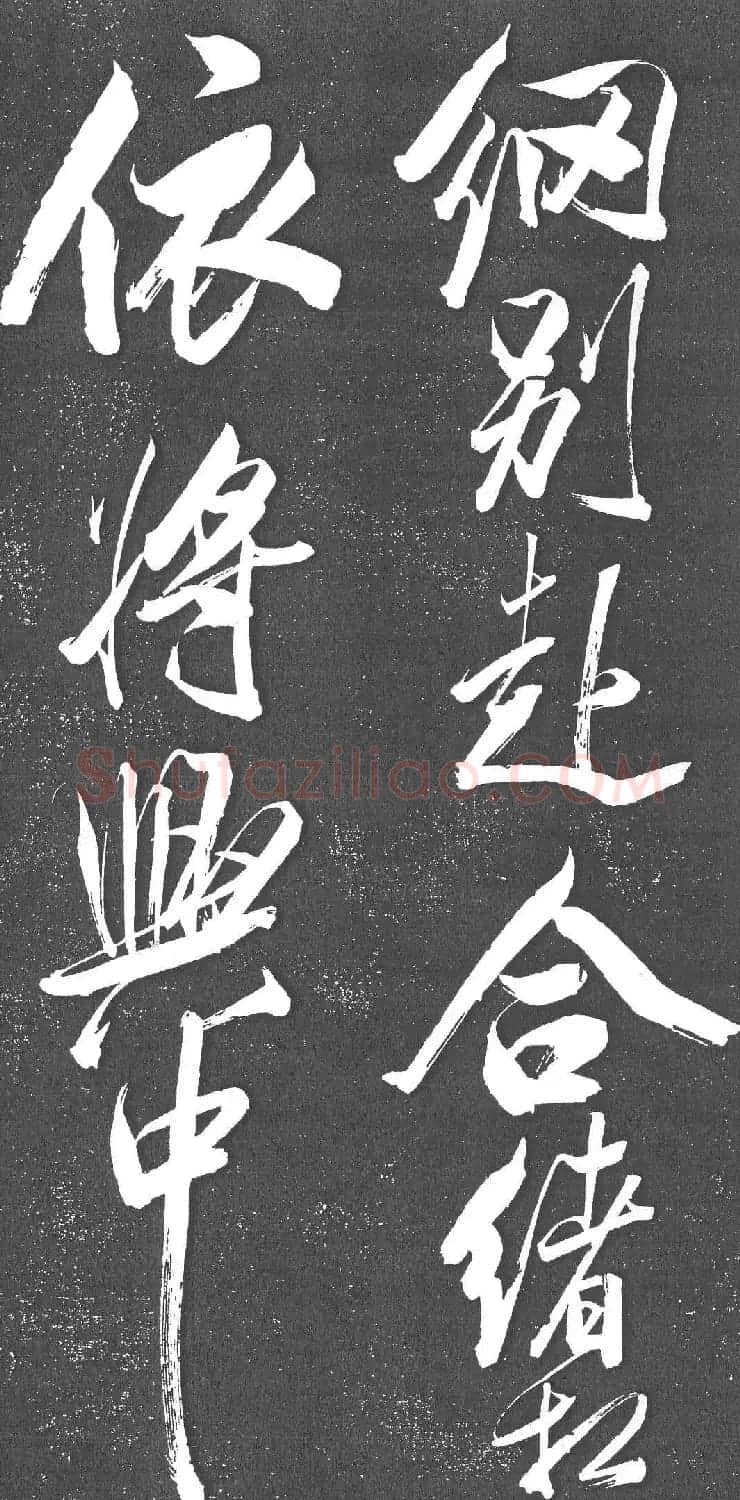 別赴合緒
依將興中
Shufaziliao.COM